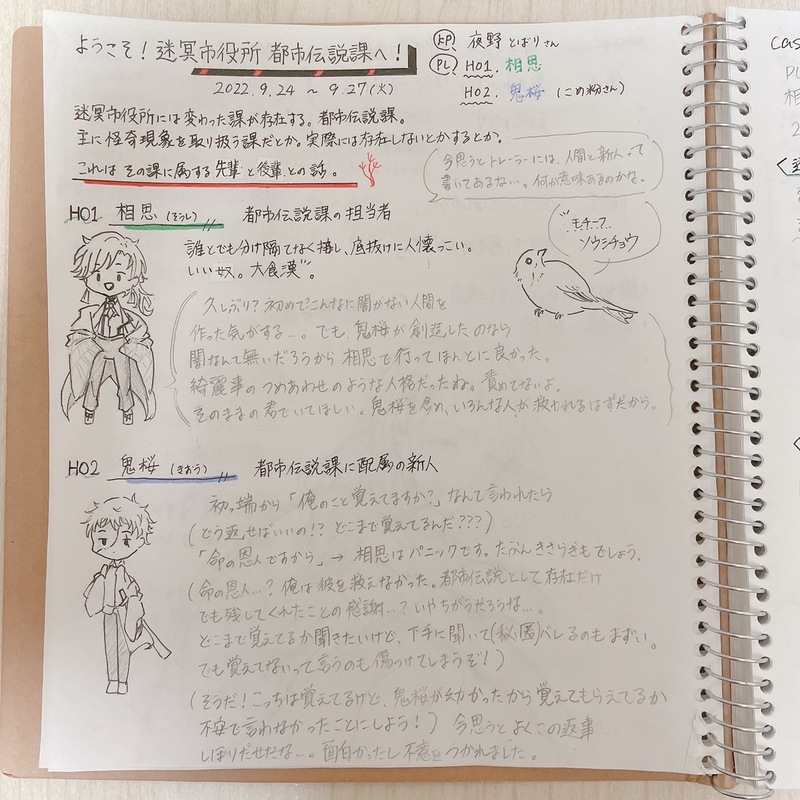 ようこそ!迷冥市役所 都市伝説課へ!
2022.9.24 ~ 9.27(火)
KP 夜野とばりさん
PL HO1. 相思
HO2. 鬼桜(こめ粉さん)
迷冥市役所には変わった課が存在する。都市伝説課。
主に怪奇現象を取り扱う課だとか。実際には存在しないとかするとか。
これは その課に属する先輩と後輩との話。
今思うとトレーラーには、人間と新人って
書いてあるな…。何か意味あるのかな。
HO1 相思(そうし) 都市伝説課の担当者
誰とでも分け隔てなく接し、底抜けに人懐っこい。
いい奴。大食漢。
"モチーフ"
ソウシチョウ
久しぶり?初めてこんなに闇がない人間を
作った気がする…。でも、鬼桜が創造したのなら
闇なんて無いだろうから 相思で行ってほんとに良かった。
綺麗事のつめあわせのような人格だったね。責めてないよ。
そのままの君でいてほしい。鬼桜を含め、いろんな人が救われるはずだから。
HO2 鬼桜(きおう) 都市伝説課に配属の新人
初っ端から「俺のこと覚えてますか?」なんて言われたら
(どう返せばいいの!? どこまで覚えてるんだ???)
「命の恩人ですから」→ 相思はパニックです。たぶんきさらぎもでしょう。
(命の恩人…?俺は彼を救えなかった。都市伝説として存在だけ
でも残してくれたことの感謝…?いやちがうだろうな…。
どこまで覚えてるか聞きたいけど、下手に聞いて(秘匿)バレるのもまずい。
でも覚えてないって言うのも傷つけてしまうぞ!)
(そうだ!こっちは覚えてるけど、鬼桜が幼かったから覚えてもらえてるか
不安で言わなかったことにしよう!) 今思うとよくこの返事
しぼりだせたな…。面白かったし不意をつかれました。
cas
PL
相